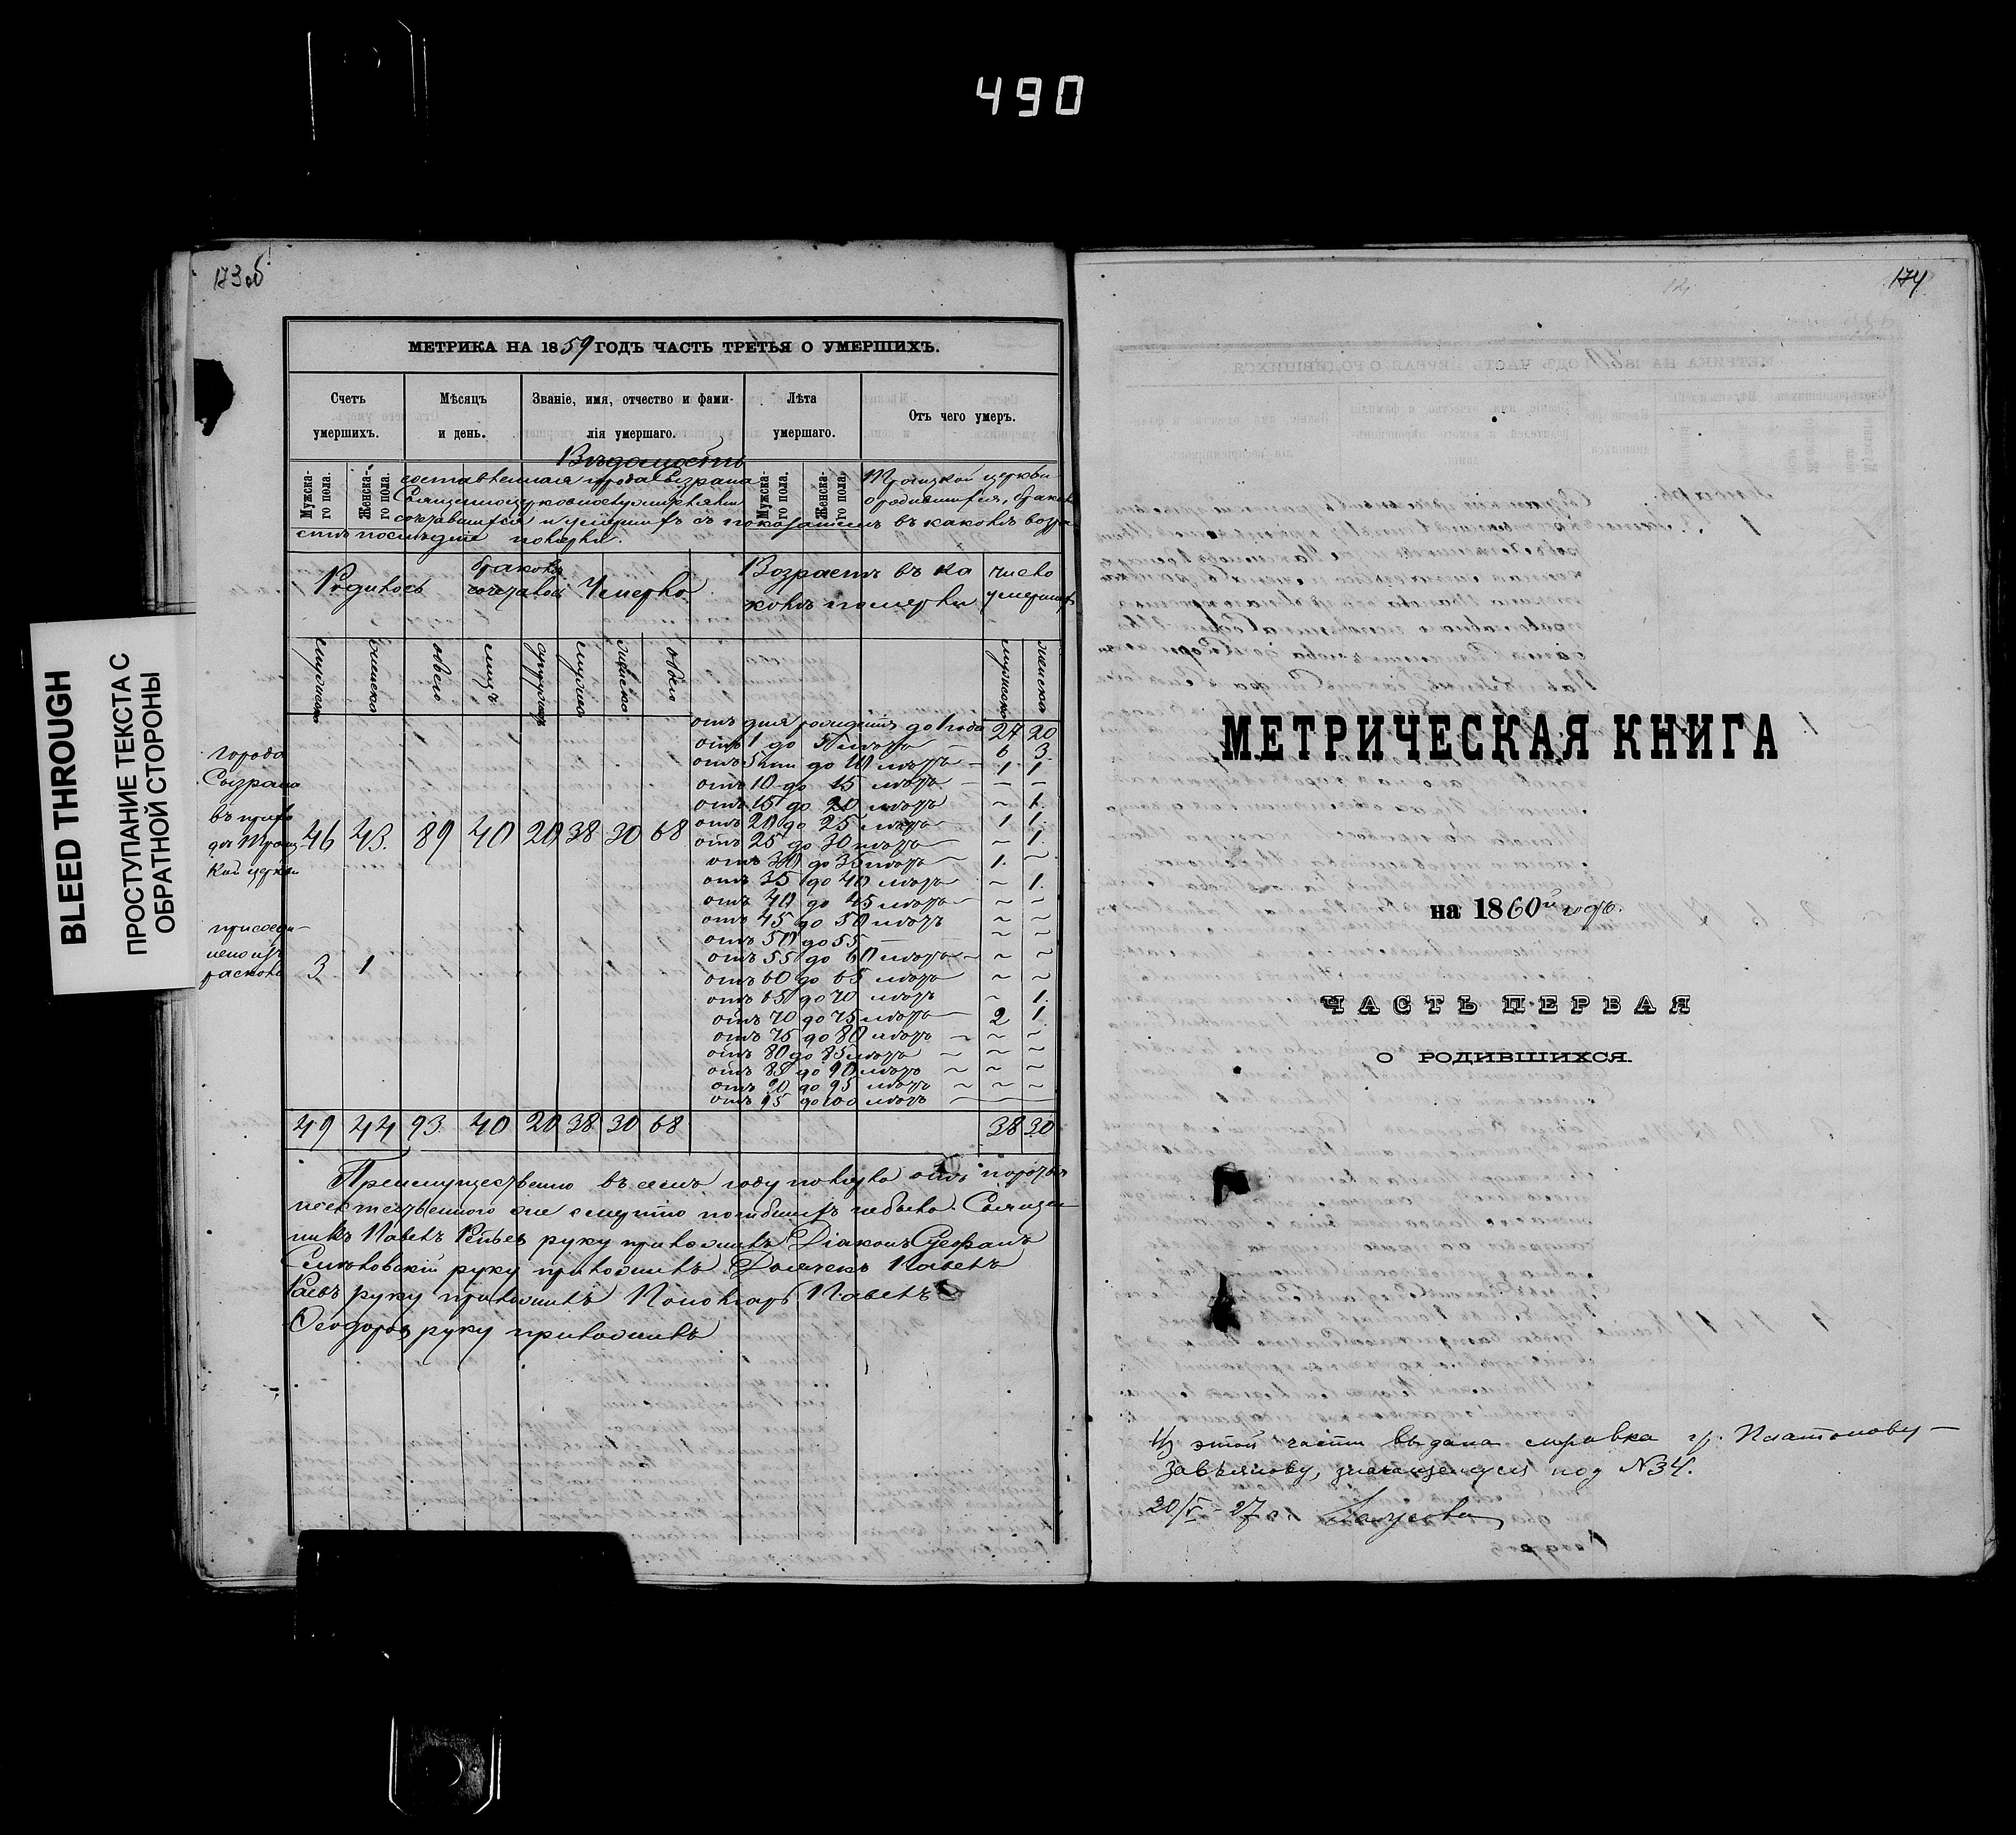 490
173 об
174
BLEED THROUGH
ПРОСТУПАНИЕ ТЕКСТА С
ОБРАТНОЙ СТОРОНЫ
МЕТРИКА НА 1859 ГОДЪ ЧАСТЬ ТРЕТЬЯ О УМЕРШИХЪ.
Счетъ умершихъ.
Мѣсяцъ и день.
Званіе, имя, отчество и фамилія умершаго.
Лѣта умершаго.
Отъ чего умеръ.
Мужска-го пола.
Женска-го пола.
Мужска-го пола.
Женска-го пола.
Вѣдомость
составленная города Сызрана Троицкой церкви
Священноцерковнослужителями о родившихся, бракомъ
сочетавшихся и умершихъ съ показаніемъ въ какомъ возра
стѣ послѣдніе померли.
Родилось
бракомъ сочетавш
Умерло
Возрастъ въ ка
комъ померли
число
умершихъ
мужеска
женска
обоего
лицъ
супружествъ
мужеска
женска
обоего
мужеска
женска
города
Сызрана
въ прихо
дѣ Троиц
кой церкви
46 43. 89 40 20 38 30 68
присоеди-
нено изъ
раскола
3 1
отъ дня рожденія до 1 года 27 20
отъ 1 до 5 лѣтъ — 6 3
отъ 5ти до 10 лѣтъ — 1 1
отъ 10 до 15 лѣтъ — — —
отъ 15 до 20 лѣтъ ~ 1.
отъ 20 до 25 лѣтъ — 1 1.
отъ 25 до 30 лѣтъ — ~ 1.
отъ 30 до 35 лѣтъ — 1. ~
отъ 35 до 40 лѣтъ ~ 1.
отъ 40 до 45 лѣтъ — ~ ~
отъ 45 до 50 лѣтъ ~ ~
отъ 50 до 55 — ~ ~
отъ 55 до 60 лѣтъ — ~ ~
отъ 60 до 65 лѣтъ ~ ~
отъ 65 до 70 лѣтъ ~ 1.
отъ 70 до 75 лѣтъ — 2 1
отъ 75 до 80 лѣтъ ~ ~ ~
отъ 80 до 85 лѣтъ ~ ~ ~
отъ 85 до 90 лѣтъ ~ ~ ~
отъ 90 до 95 лѣтъ ~ ~ ~
отъ 95 до 100 лѣтъ — — —
49 44 93. 40 20 38 30 68 38 30
Преимущественно въ семъ году померло отъ
неестественною же смертію погибшихъ небыло. Священ
никъ Павелъ руку приложилъ Діаконъ Стефанъ
руку приложилъ Дьячекъ Павелъ
руку приложилъ Пономарь Павелъ
Ѳеодоровъ руку приложилъ
МЕТРИЧЕСКАЯ КНИГА
на 1860й годъ.
ЧАСТЬ ПЕРВАЯ
О РОДИВШИХСЯ.
Из этой части выдана справка гр. Платонову-
Завьялову, значащемуся под №34.
20/V - 27 г.